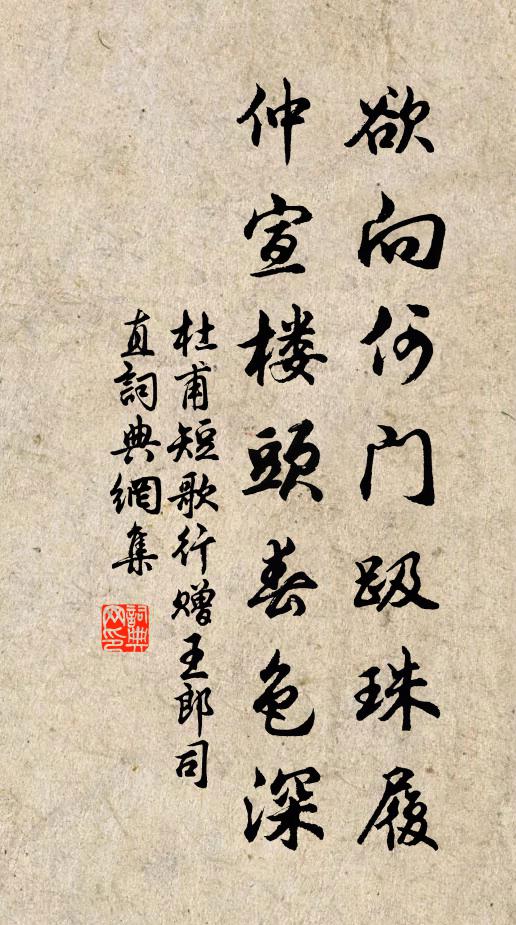 欲向何門趿珠履
仲宣楼頭春色深
杜甫短歌行赠王郎司
直詞典網集
詞典网印